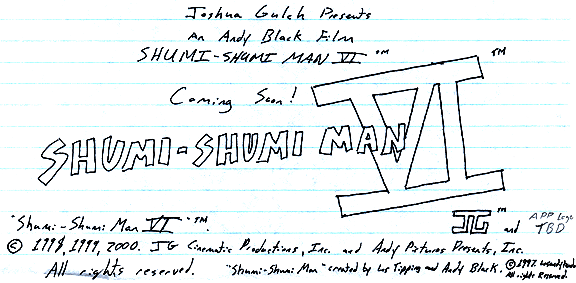 Joshua Gulch Presents
An Andy Black Film
SHUMI-SHUMI MAN VI ™
Coming Soon!
SHUMI-SHUMI MAN VI ™
"Shumi-Shumi Man VI"™.
JG ™ and APP Logo TBD
© 1998, 1999, 2000. JG Cinematic Productions, Inc. and Andy Pictures Presents, Inc.
All rights reserved. "Shumi-Shumi Man" created by Les Tipping and Andy Black. © 1997.
All rights Reserved.